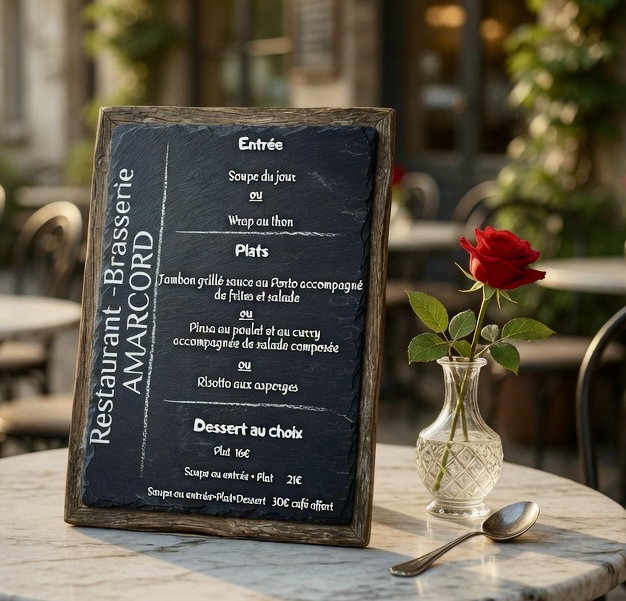 Restaurant -Brasserie
AMARCORD
Entrée
Soupe du jour
ou
Wrap au thon
Plats
Jambon grillé sauce au Porto accompagné
de frites et salade
ou
Pinsa au poulet et au curry
accompagnée de salade composée
ou
Risotto aux asperges
Dessert au choix
Plat 16€
Soupe ou entrée + Plat 21€
Soupe ou entrée+Plat+Dessert 30€ café offert